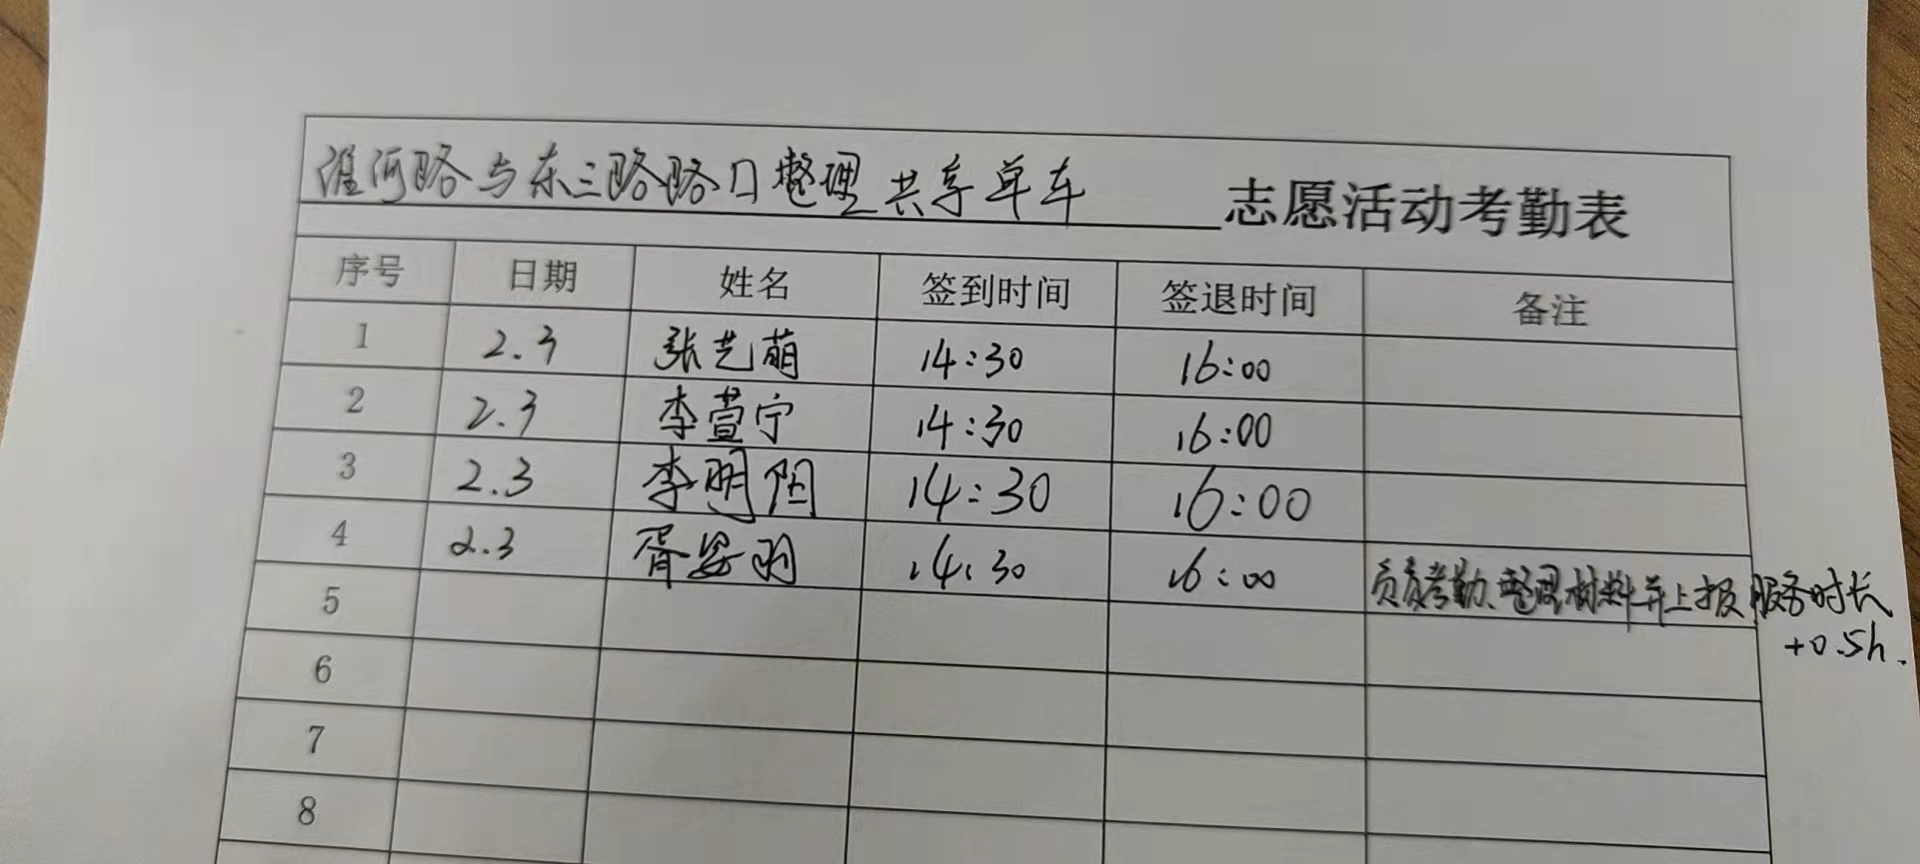 淮河路与东三路路口整理共享单车 志愿活动考勤表
序号 日期 姓名 签到时间 签退时间 备注
1 2.3 张艺萌 14:30 16:00
2 2.3 李萱宁 14:30 16:00
3 2.3 李明阳 14:30 16:00
4 2.3 胥姿羽 14:30 16:00 负责考勤、整理材料并上报服务时长
+0.5h.
5
6
7
8